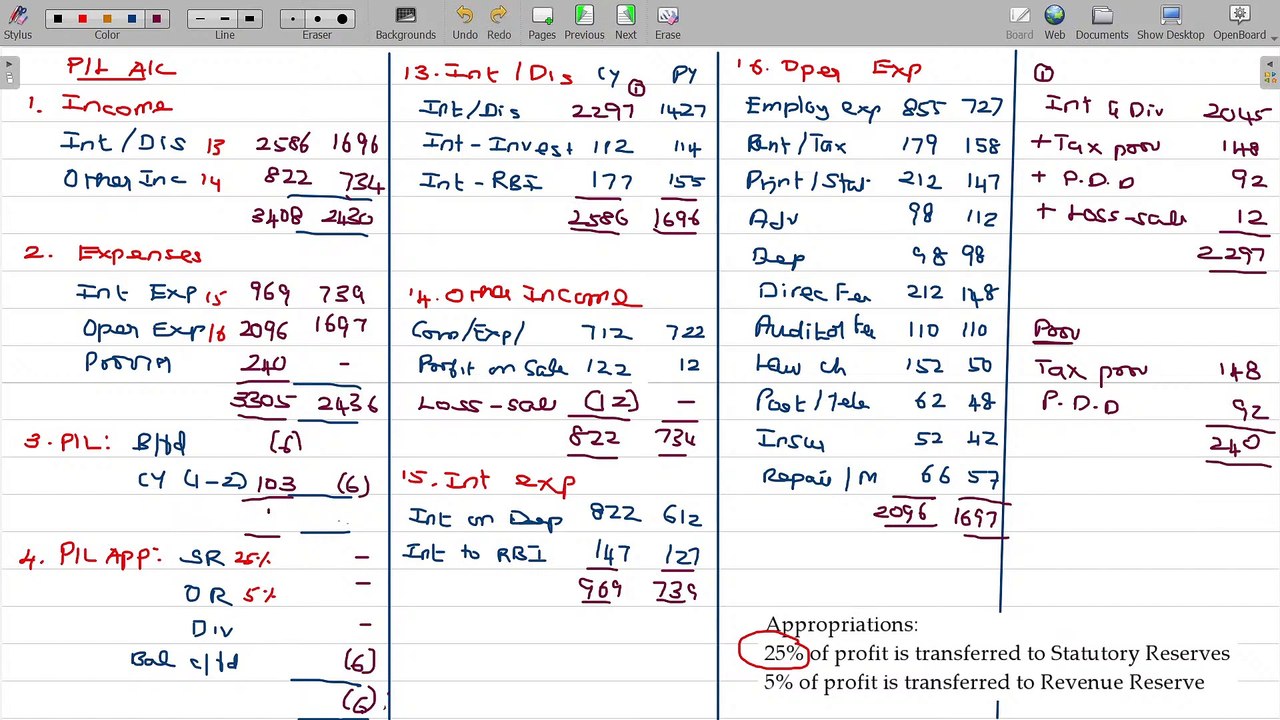 Stylus
Color
Line
Eraser
Backgrounds
Undo
Redo
Pages
Previous
Next
Erase
Board
Web
Documents
Show Desktop
OpenBoard
P/L A/C
1. Income
Int/Dis 13 2586 1696
Other Inc 14 822 734
3408 2430
2. Expenses
Int Exp 15 969 739
Oper Exp 16 2096 1697
Provin 240 -
3305 2436
3. P/L: B/fd (6)
CY (1-2) 103 (6)
4. P/L App: SR 25% -
OR 5% -
Div -
Bal c/fd (6)
(6)
13. Int/Dis CY PY
Int/Dis 2297 (i) 1427
Int-Invest 112 114
Int-RBI 177 155
2586 1696
14. Other Income
Com/Exp/ 712 722
Profit on Sale 122 12
Loss-sale (12) -
822 734
15. Int exp
Int on Dep 822 612
Int to RBI 147 127
969 739
16. Oper Exp
Employ exp 855 727
Rent/Tax 179 158
Print/Stat 212 147
Adv 98 112
Dep 98 98
Direc Fee 212 148
Auditor fee 110 110
Law ch 152 50
Post/Tele 62 48
Insur 52 42
Repair/M 66 57
2096 1697
(i)
Int & Div 2045
+ Tax prov 148
+ P.D.D 92
+ Loss-sale 12
2297
Prov
Tax prov 148
P.D.D 92
240
Appropriations:
25% of profit is transferred to Statutory Reserves
5% of profit is transferred to Revenue Reserve